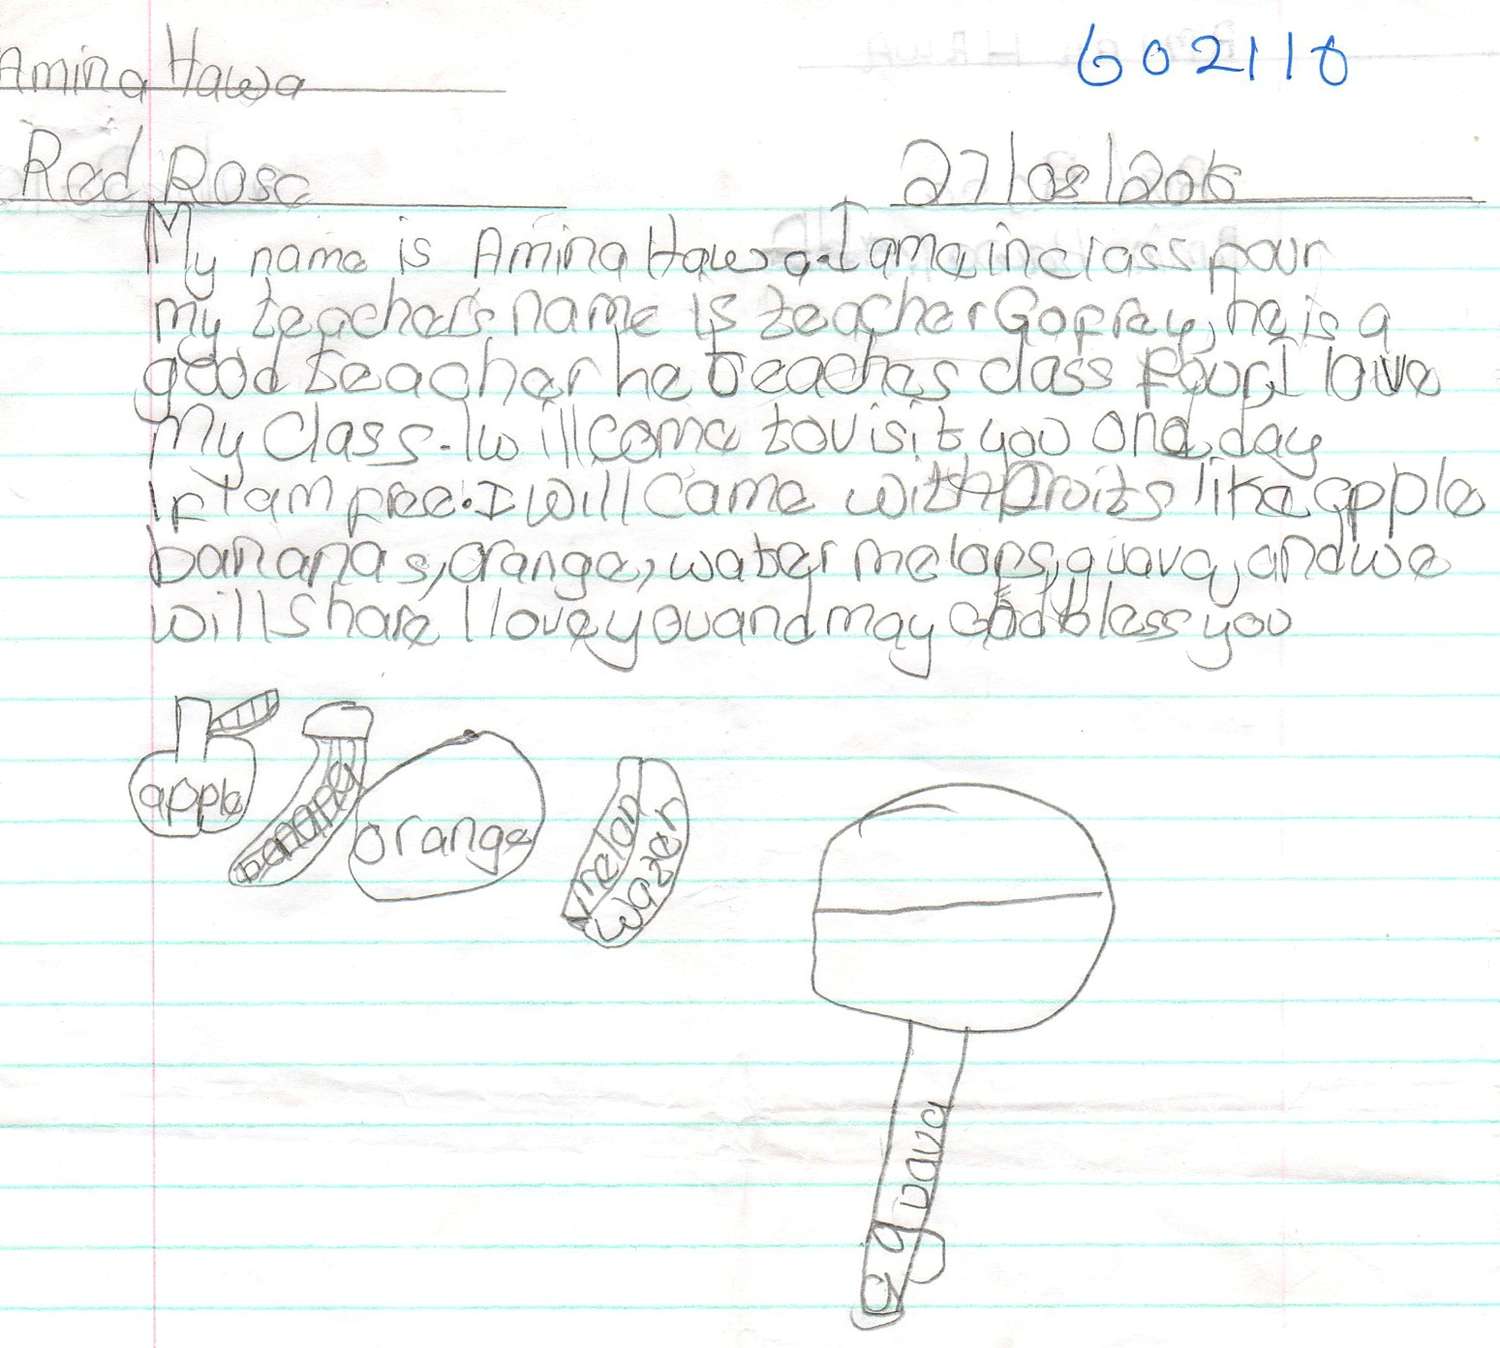 Amina Hawa
602110
Red Rose
27/08/2015
My name is Amina Hawa I ame in class four
my teacher's name is teacher Gofrey, he is a
good teacher he teaches class four, I love
My Class. I will come to visit you one day
If I am free. I will came with fruits like apple
bananas, orange, water melons, guava, and we
will share I love you and may God bless you
apple
banana
orange
melon
water
guava